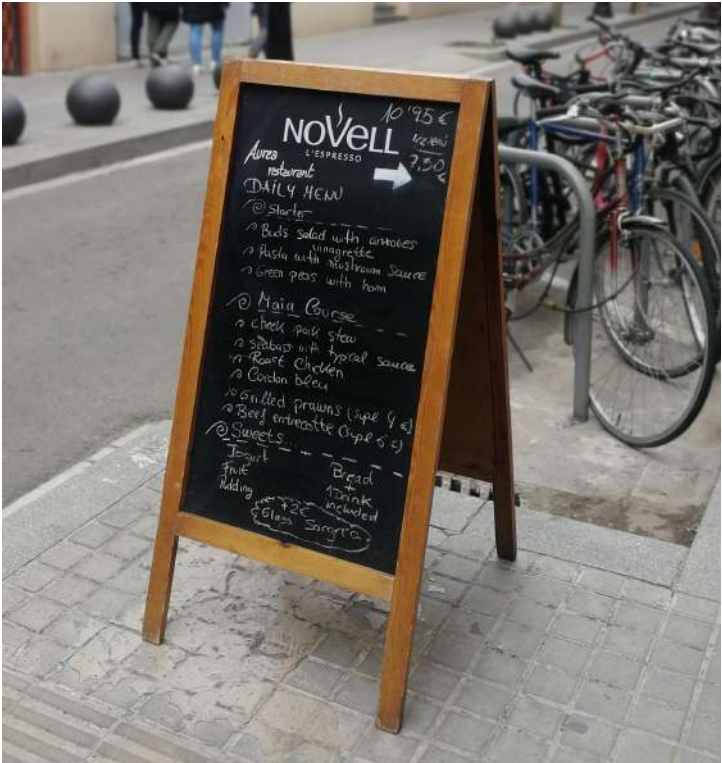 NOVELL
L'ESPRESSO
10'95 €
1/2 MENÚ
7,50 €
Aurea
restaurant
DAILY MENU
Starter
Buds salad with anchovies
vinagrette
Pasta with mushroom sauce
Green peas with ham
Main Course
cheek pork stew
Seabass with typical sauce
Roast Chicken
Cordon bleu
Grilled prawns (supl 4 €)
Beef entrecotte (supl 5 €)
Sweets...
Iogurt
Fruit
Pudding
Bread
+
1 Drink
included
+2€
Glass Sangria